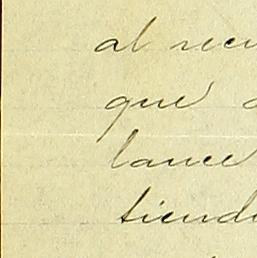 al recu
que
lance
tiend